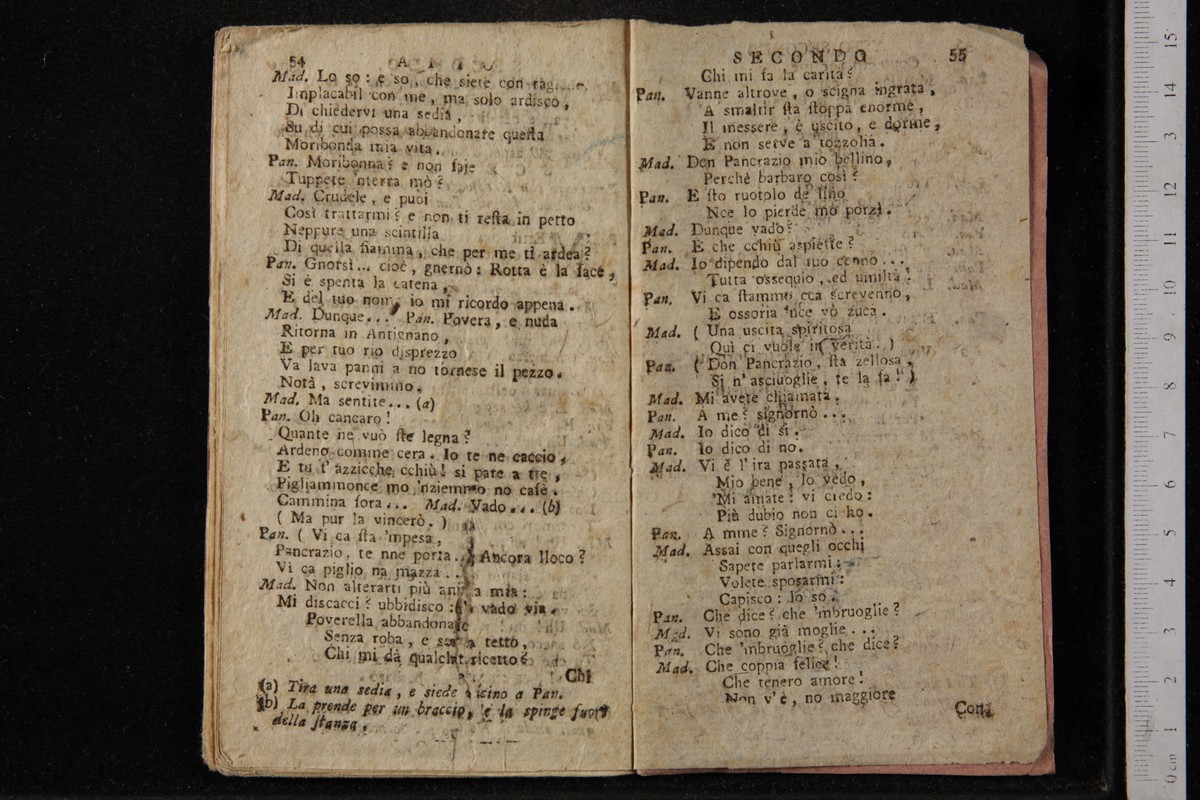 54 A T T O
Mad. Lo so: e so, che siete con
Implacabil con me, ma solo ardisco,
Di chiedervi una sedia,
Su di cui possa abbandonare questa
Moribonda mia vita.
Pan. Moribonna? e non saje
Tuppete 'nterra mò?
Mad. Crudele, e puoi
Così trattarmi? e non ti resta in petto
Neppure una scintilla
Di quella fiamma, che per me ti ardea?
Pan. Gnorsì... cioè, gnernò: Rotta è la face,
Si è spenta la catena,
E del tuo nome io mi ricordo appena.
Mad. Dunque... Pan. Povera, e nuda
Ritorna in Antignano,
E per tuo rio disprezzo
Va lava panni a no tornese il pezzo.
Notà, screvimmo.
Mad. Ma sentite... (a)
Pan. Oh cancaro!
Quante ne vuò ste legna?
Ardeno comme cera. Io te ne caccio,
E tu t' azzicche cchiù! si pare a tre,
Pigliammonce mo 'nziemmo no cafè.
Cammina fora... Mad. Vado... (b)
( Ma pur la vincerò. )
Pan. ( Vi ca sta 'mpesa,
Pancrazio, te nne porta..) Ancora lloco?
Vi ca piglio na mazza...
Mad. Non alterarti più anima mia:
Mi discacci? ubbidisco: vado via.
Poverella abbandonata
Senza roba, e senza tetto,
Chi mi dà qualche ricetto?
Chi
(a) Tira una sedia, e siede vicino a Pan.
(b) La prende per un braccio, e la spinge fuori
della stanza.
SECONDO 55
Chi mi fa la carità?
Pan. Vanne altrove, o scigna ingrata,
A smaltir sta stoppa enorme,
Il messere, è uscito, e dorme,
E non serve a tozzolià.
Mad. Don Pancrazio mio bellino,
Perchè barbaro così?
Pan. E sto ruotolo de lino
Nce lo pierde mo porzì.
Mad. Dunque vado?
Pan. E che cchiù aspiette?
Mad. Io dipendo dal tuo cenno...
Tutta ossequio, ed umiltà!
Pan. Vi ca stammo cca screvenno,
E ossoria 'nce vò zuca.
Mad. ( Una uscita spiritosa
Quì ci vuole in verità. )
Pan. ( Don Pancrazio, sta zellosa,
Si n' asciuoglie, te la fa! )
Mad. Mi avete chiamata.
Pan. A me? signornò...
Mad. Io dico di sì.
Pan. Io dico di no.
Mad. Vi è l' ira passata,
Mio bene, lo vedo,
Mi amate: vi credo:
Più dubio non ci ho.
Pan. A mme? Signornò...
Mad. Assai con quegli occhi
Sapete parlarmi:
Volete sposarmi:
Capisco: lo so.
Pan. Che dice? che 'mbruoglie?
Mad. Vi sono già moglie...
Pan. Che 'mbruoglie? che dice?
Mad. Che coppia felice!
Che tenero amore!
Non v' è, no maggiore